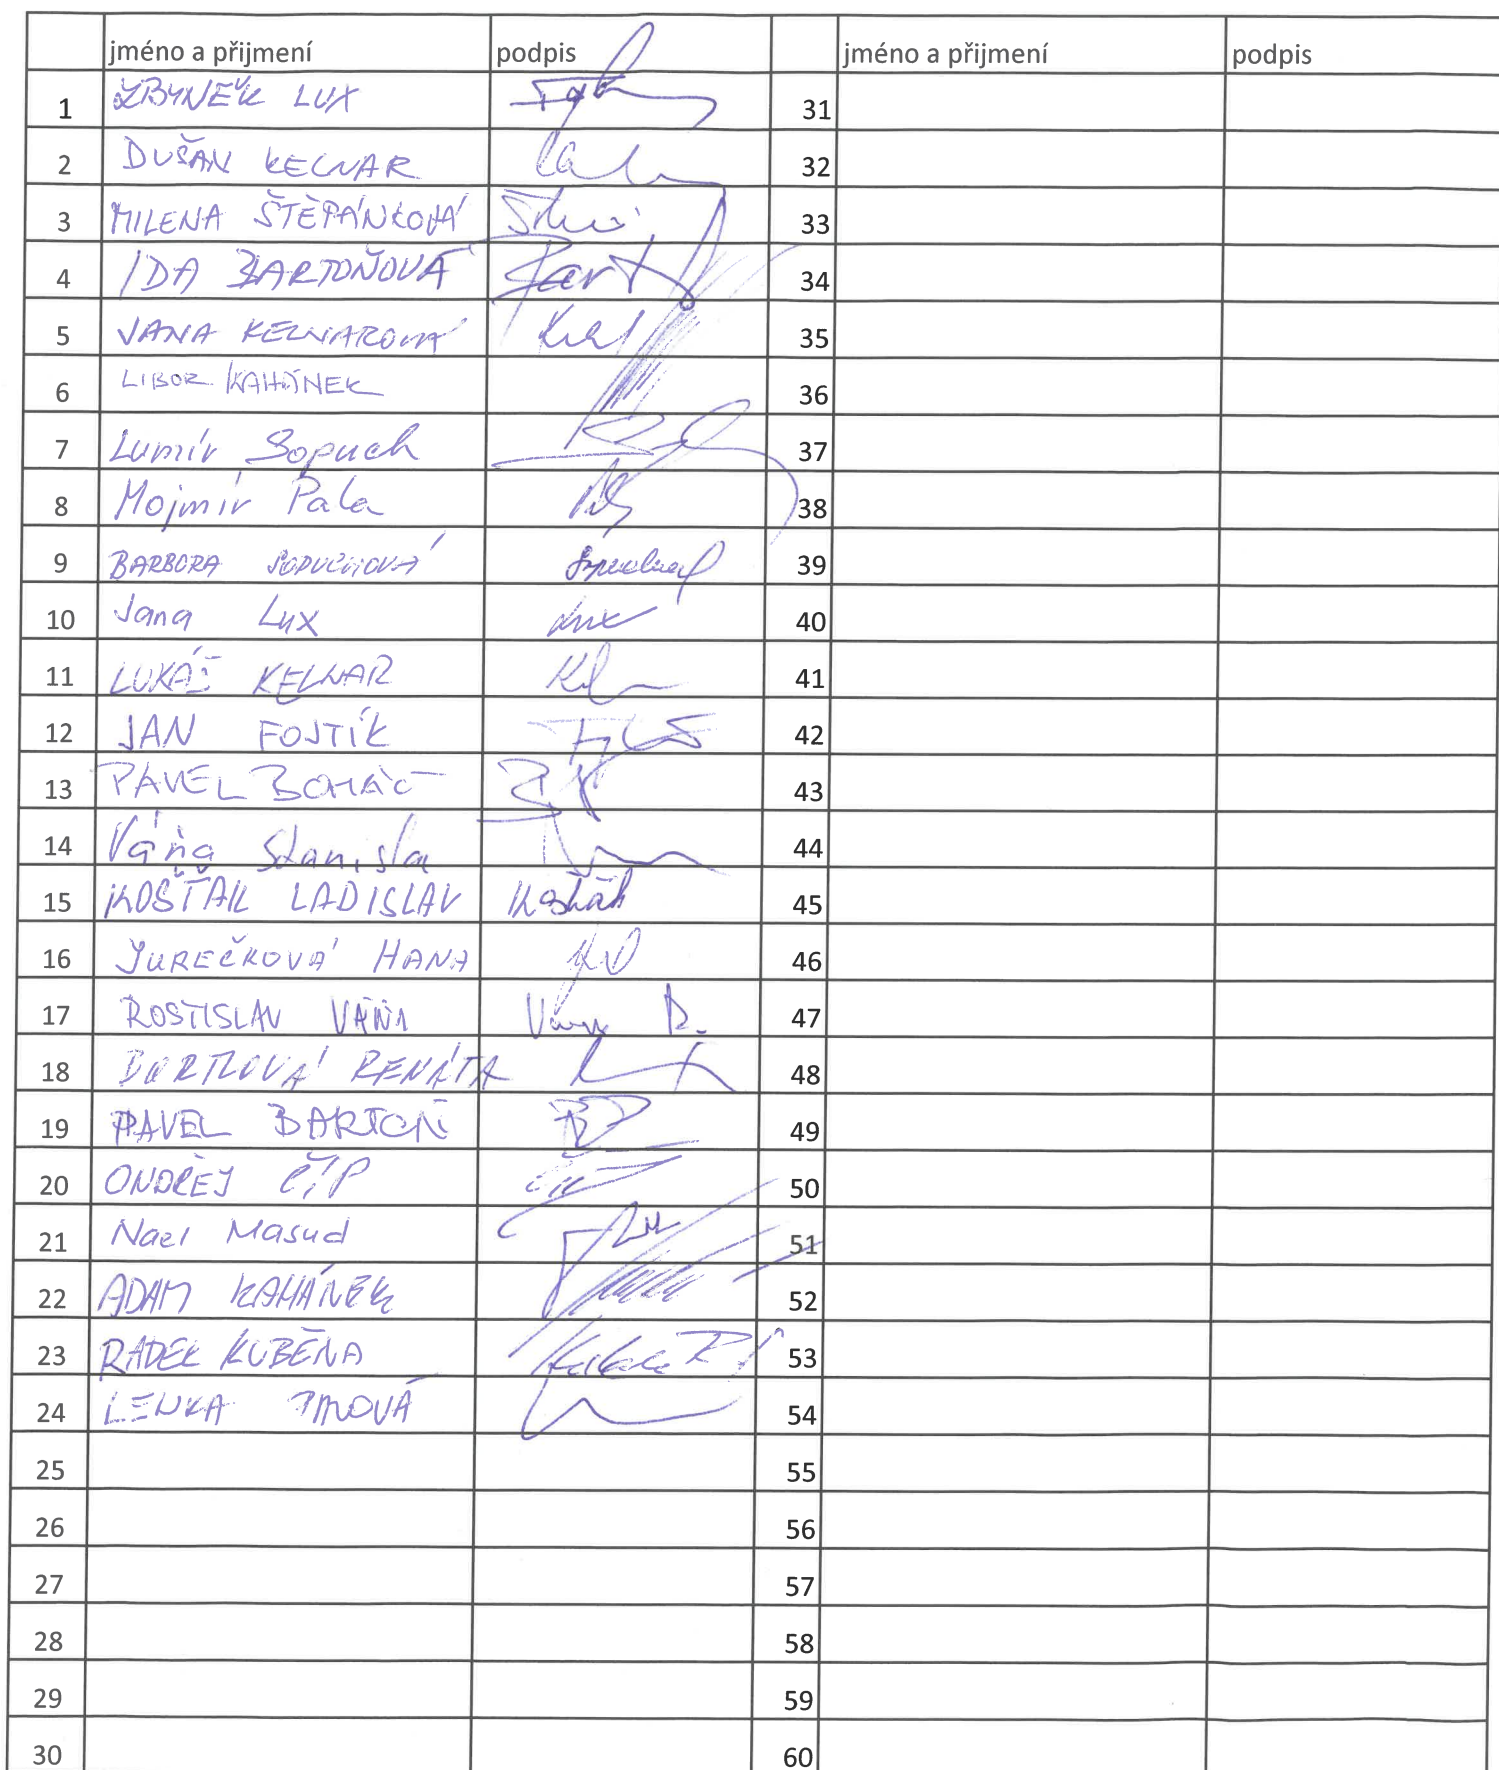 jméno a přijmení podpis jméno a přijmení podpis
1 ZBYNĚK LUX 31
2 DUŠAN KELNAR 32
3 MILENA ŠTĚPÁNKOVÁ 33
4 IDA BARTOŇOVÁ 34
5 JANA KELNAROVÁ 35
6 LIBOR KAHÁNEK 36
7 Lumír Sopuch 37
8 Mojmír Pala 38
9 BARBORA SOPUCHOVÁ 39
10 Jana Lux Lux 40
11 LUKÁŠ KELNAR 41
12 JAN FOJTÍK 42
13 PAVEL BOHÁČ 43
14 Váňa Stanislav 44
15 KOŠŤÁK LADISLAV Košťák 45
16 JUREČKOVÁ HANA 46
17 ROSTISLAV VÁŇA 47
18 RENÁTA 48
19 PAVEL BARTOŇ 49
20 ONDŘEJ ČÍP 50
21 Nael Masud 51
22 ADAM KAHÁNEK 52
23 RADEK KUBĚNA 53
24 LENKA 54
25 55
26 56
27 57
28 58
29 59
30 60